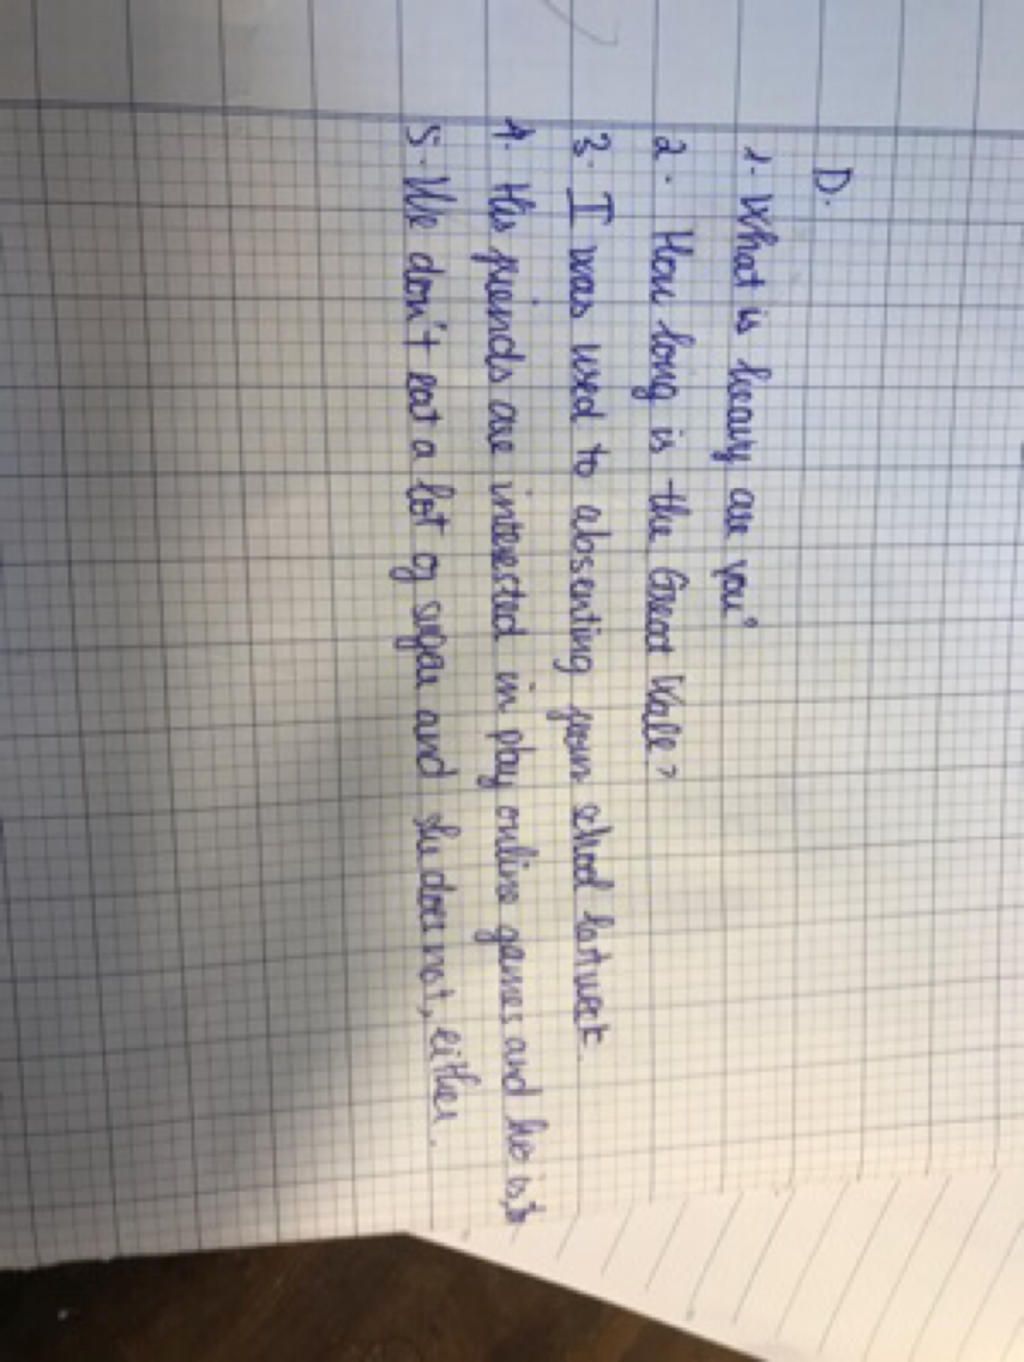 D.
1. What is heavy are you?
2. How long is the Great Wall?
3. I was used to absenting from school last week.
4. His friends are interested in play online games and he is,
5. We don't eat a lot of sugar and she does not, either.